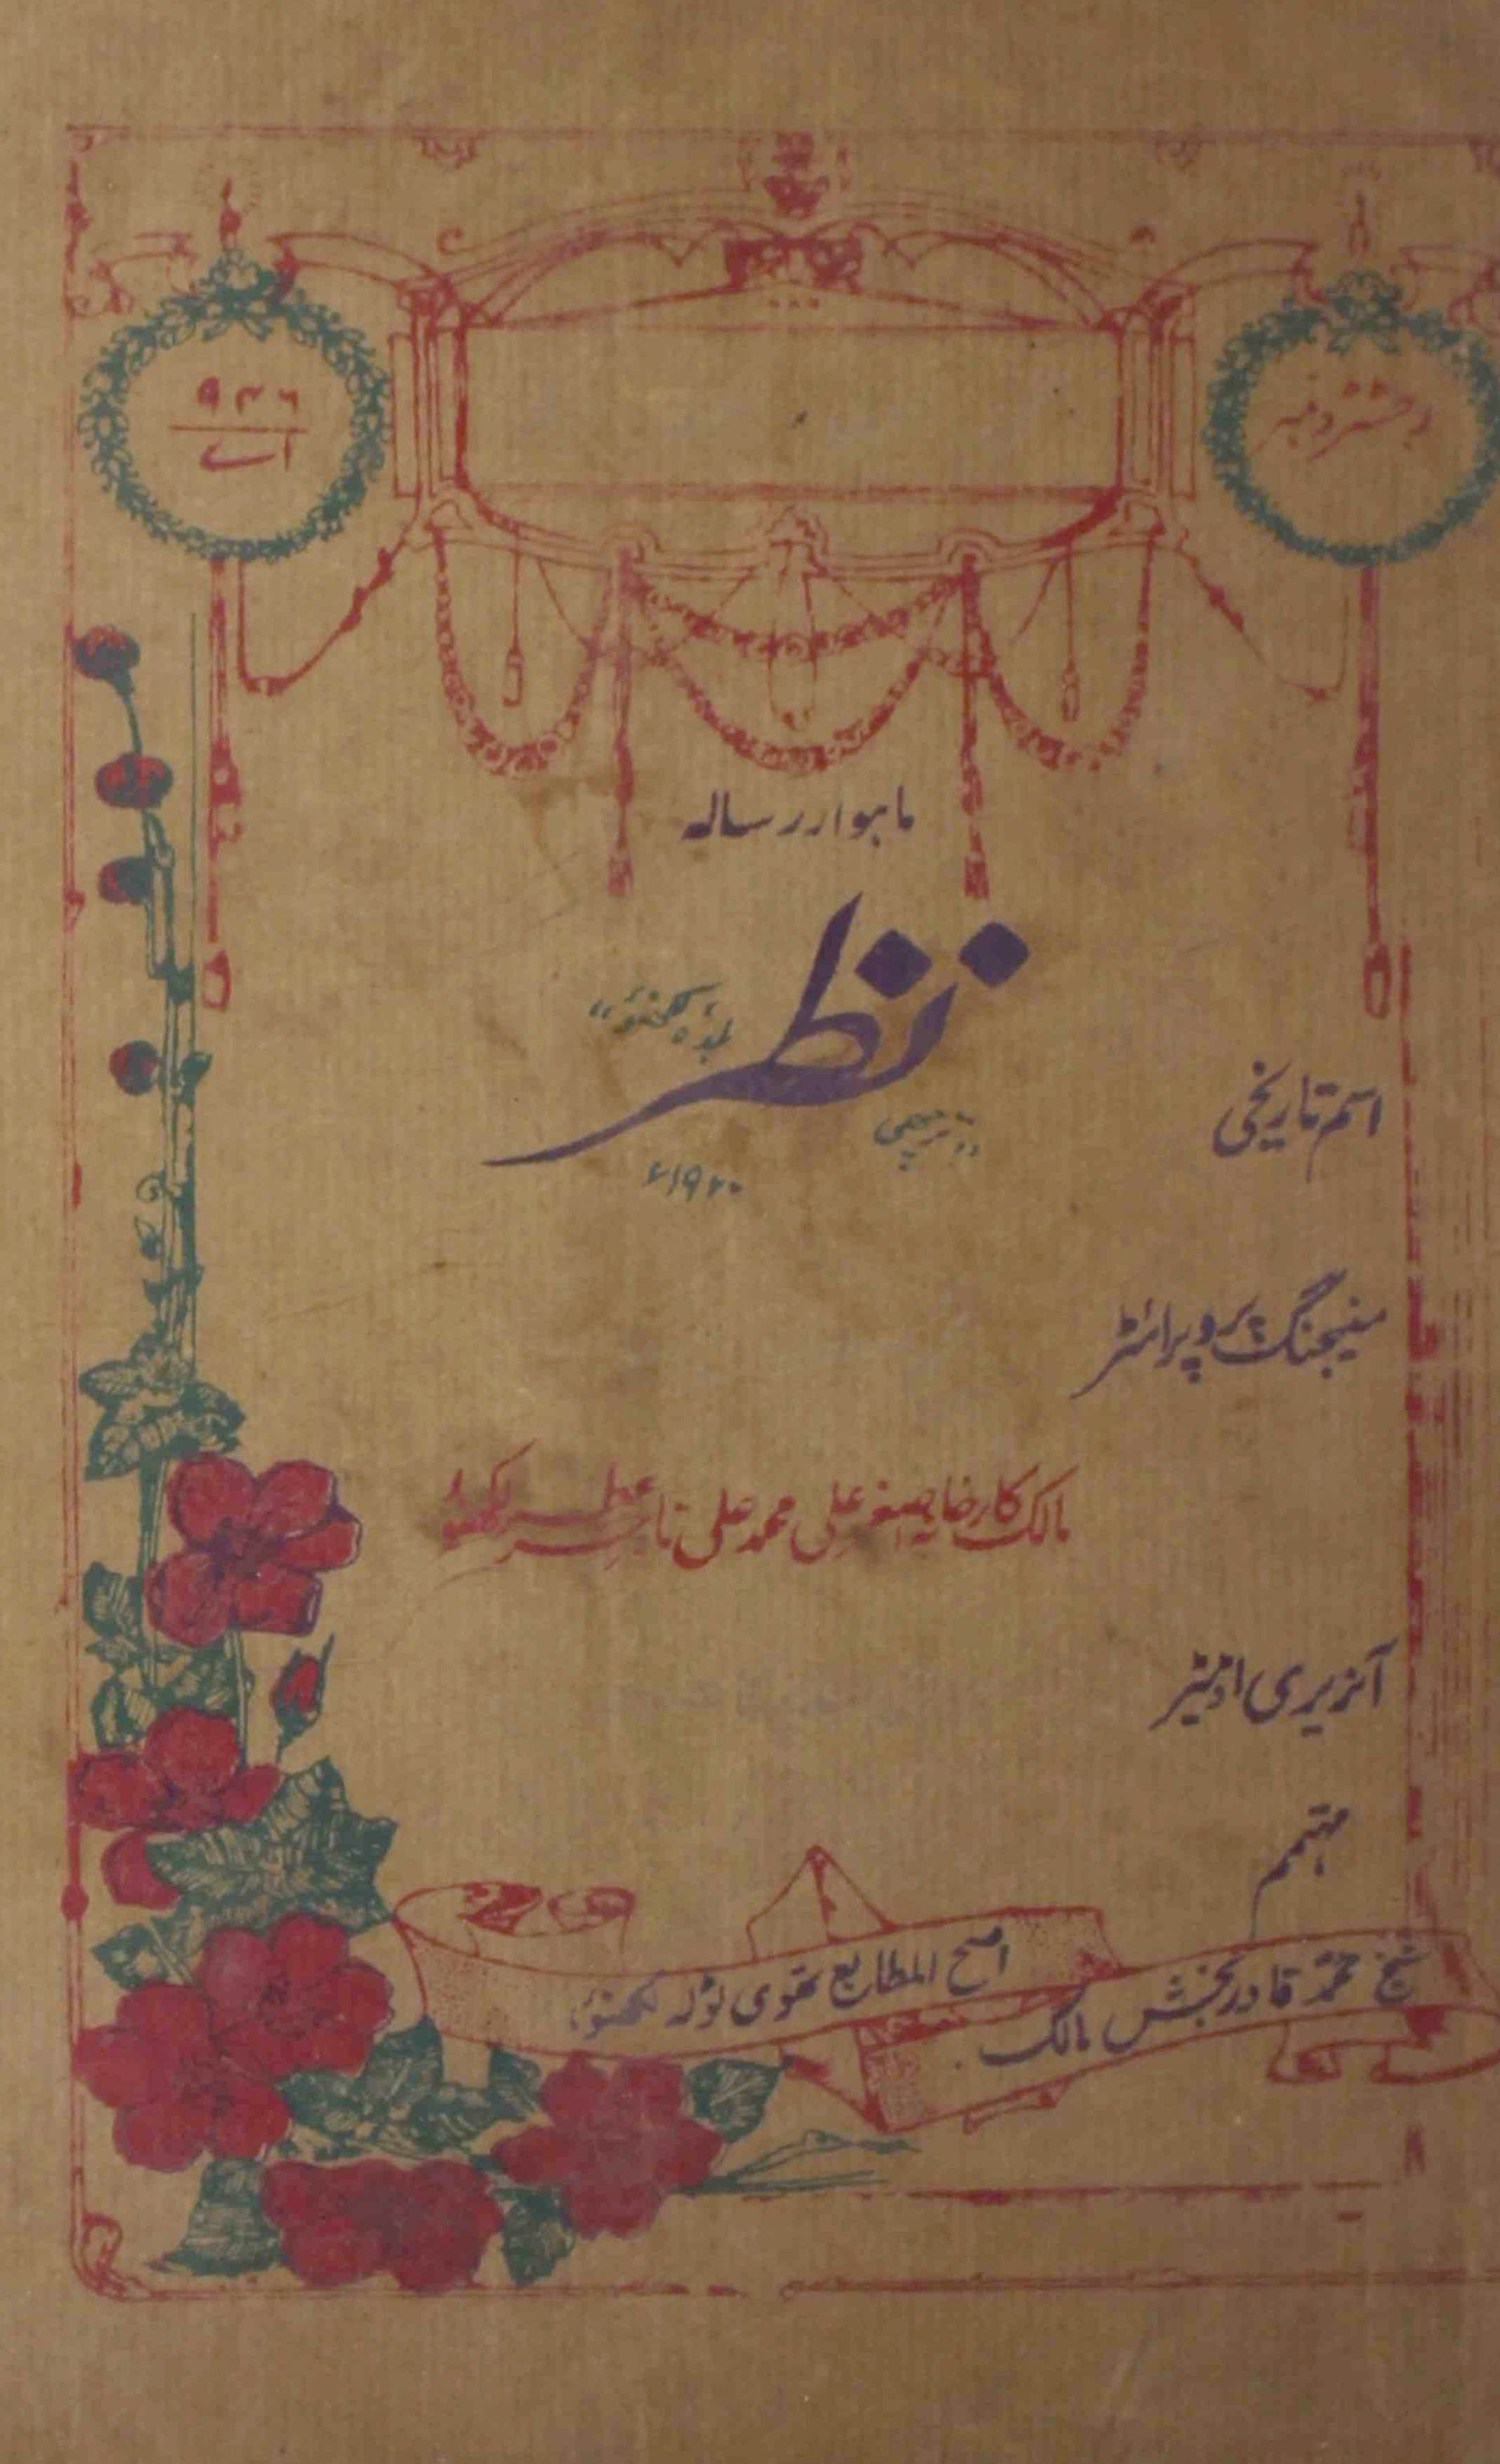 رجسٹرڈ نمبر
۹۴۶
اے
ماہوار رسالہ
نظر
لکھنؤ"
"ترچھی
۱۹۲۰ء
اسم تاریخی
منیجنگ پروپرائٹر
مالک کارخانہ اصغر علی محمد علی تاجر عطر لکھنؤ
آنریری اڈیٹر
مہتمم
شیخ محمد قادر بخش مالک
اصح المطابع نقوی ٹولہ لکھنؤ